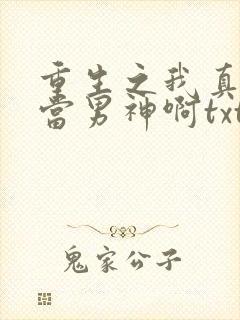 重生之我真
当男神啊txt
鬼家公子